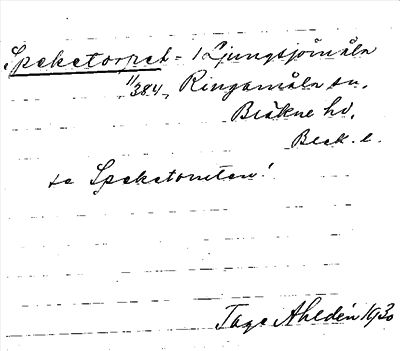 Speketorpet = 1 Ljungsjömåla
11/384, Ringamåla sn.
Bräkne hd.
Blek. l.
se Speketomten!
Tage Ahldén 1930